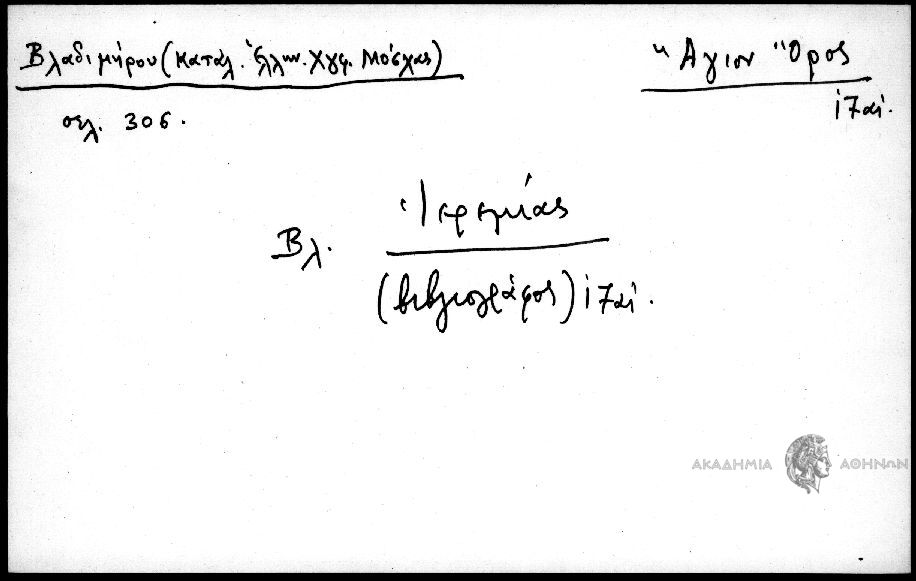 Βλαδιμήρου (Κατάλ. Ἑλλην. Χγφ. Μόσχας)
σελ. 306.
Ἅγιον Ὄρος
17αι.
Βλ. Ἱερεμίας
(βιβλιογράφος) 17αι.
ΑΚΑΔΗΜΙΑ ΑΘΗΝΩΝ